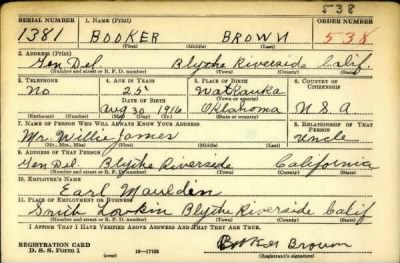 538
SERIAL NUMBER 1. NAME (Print) ORDER NUMBER
1381 BOOKER BROWN 538
(First) (Middle) (Last)
2. ADDRESS (Print)
Gen Del Blythe Riverside Calif
(Number and street or R. F. D. number) (Town) (County) (State)
3. TELEPHONE 4. AGE IN YEARS 5. PLACE OF BIRTH 6. COUNTRY OF CITIZENSHIP
No 25
DATE OF BIRTH (Town or county)
Aug 30 1916 Oklahoma U S A
(Exchange) (Number) (Mo.) (Day) (Yr.) (State or country)
7. NAME OF PERSON WHO WILL ALWAYS KNOW YOUR ADDRESS 8. RELATIONSHIP OF THAT PERSON
Mr. Willie James Uncle
(Mr., Mrs., Miss) (First) (Middle) (Last)
9. ADDRESS OF THAT PERSON
Gen Del Blythe Riverside California
(Number and street or R. F. D. number) (Town) (County) (State)
10. EMPLOYER'S NAME
Earl Mauldin
11. PLACE OF EMPLOYMENT OR BUSINESS
South Blythe Riverside Calif
(Number and street or R. F. D. number) (Town) (County) (State)
I AFFIRM THAT I HAVE VERIFIED ABOVE ANSWERS AND THAT THEY ARE TRUE.
REGISTRATION CARD
D. S. S. Form 1 (over) 16—17105 Booker Brown
(Registrant's signature)